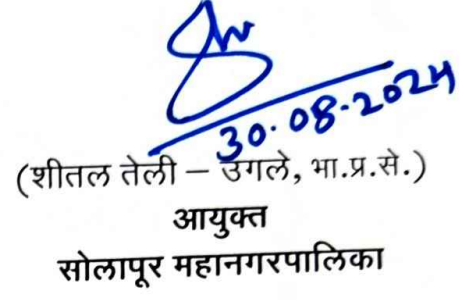 30.08.2024
(शीतल तेली – उगले, भा.प्र.से.)
आयुक्त
सोलापूर महानगरपालिका